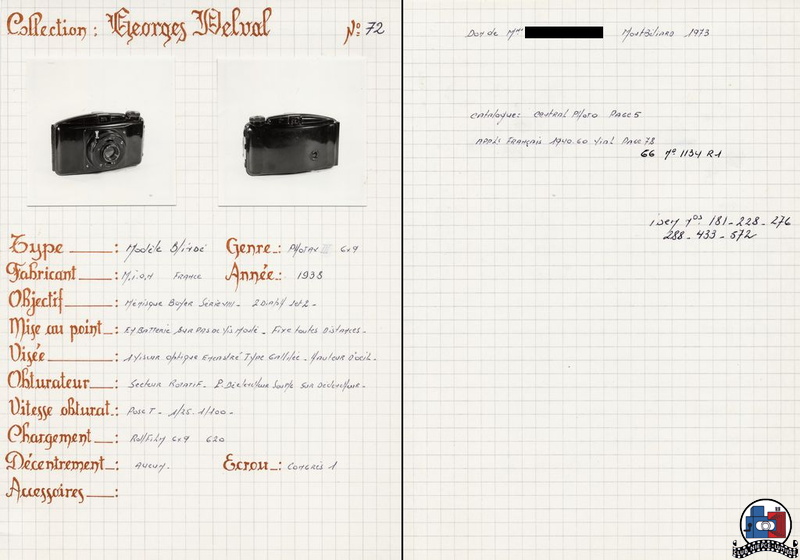 Collection : Georges Delval
No: 72
Type : Modèle Blindé
Genre : Photax 6x9
Fabricant : M.I.O.M France
Année : 1938
Objectif : Menisque Boyer Série VIII - 2 Diaf
Mise au point : En Batterie sur - Fixe toutes Distances -
Visée : Viseur optique Encadré Type Galilée - Hauteur D'oeil -
Obturateur : Secteur Rotatif - P. Déclencheur Souple sur Déclencheur -
Vitesse obturat. : Pose T - 1/25 - 1/100 -
Chargement : Rollfilm 6x9 620
Décentrement : Aucun -
Ecrou : Congrès 1
Accessoires :
Don de Mme Montbéliard 1973
Catalogue : Central Photo Page 5
App. Français 1940.60 Vial Page 78
66 No 1134 R1
idem nos : 181 - 228 - 276
288 - 433 - 572